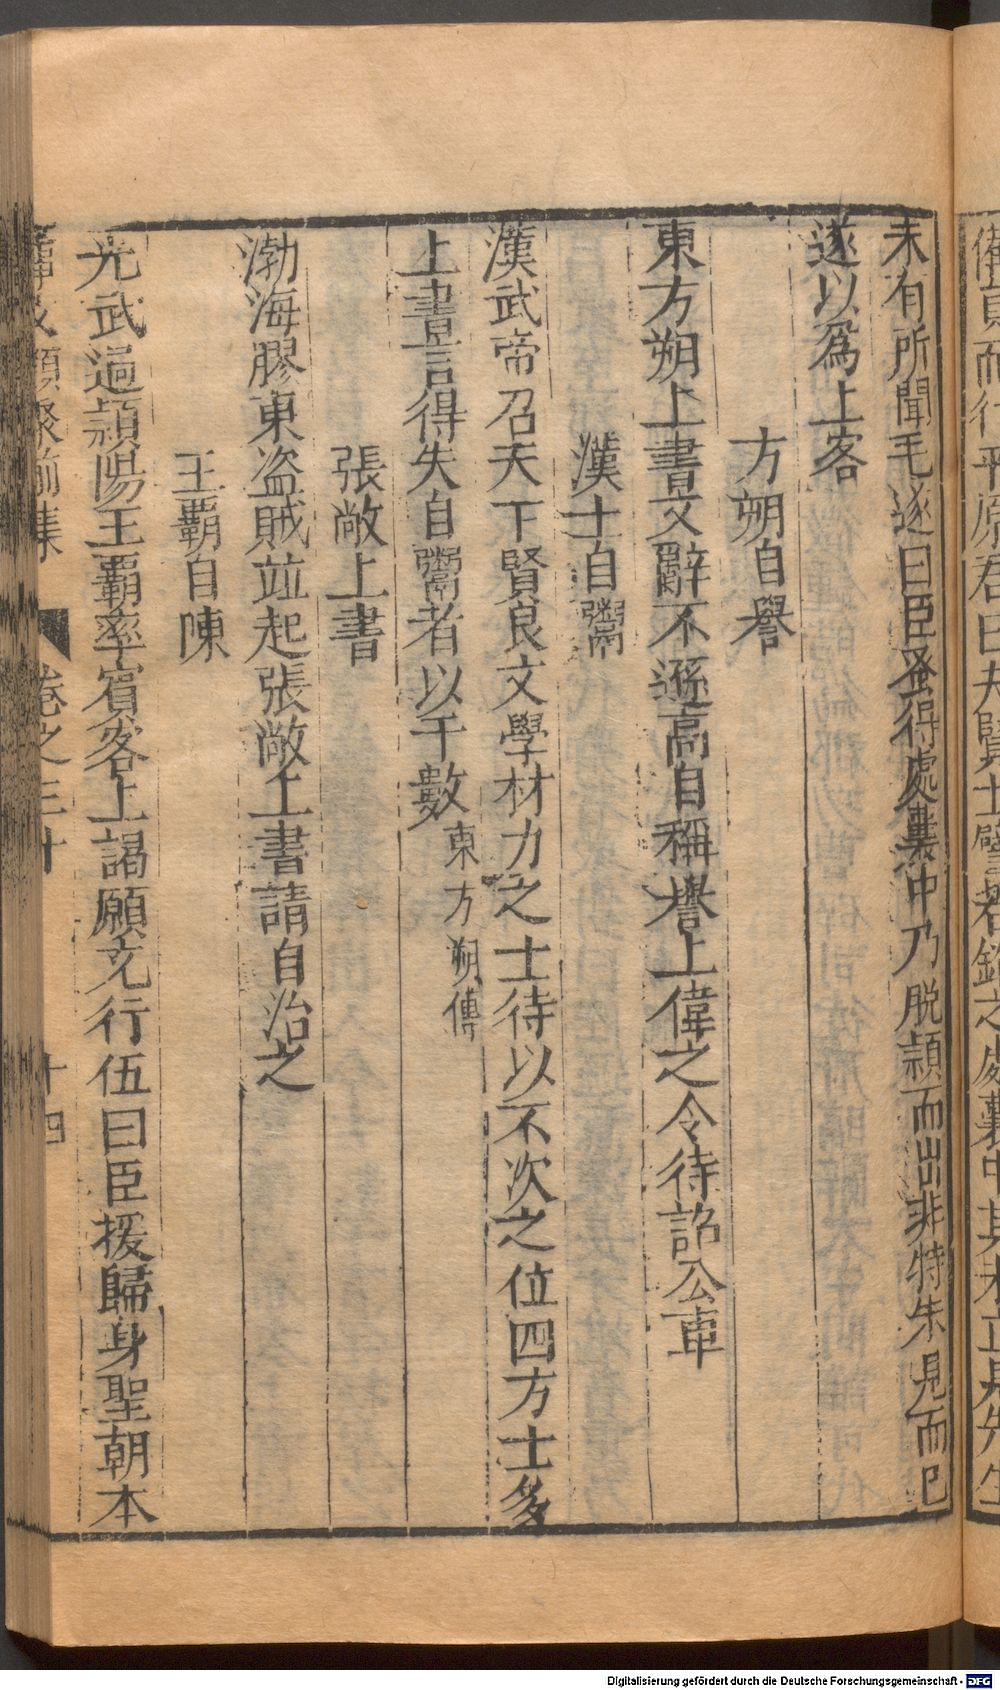 備員而行平原君曰夫賢士譬若錐之處囊中其未立見先生
未有所聞毛遂曰臣蚤得處囊中乃脫穎而出非特朱見而已
遂以爲上客
方朔自譽
東方朔上書文辭不遜高自稱譽上偉之令待詔公車
漢士自鬻
漢武帝召天下賢良文學材力之士待以不次之位四方士多
上書言得失自鬻者以千數東方朔傳
張敞上書
渤海膠東盗賊竝起張敞上書請自治之
王覇自陳
光武過潁陽王覇率賓客上謁願充行伍曰臣援歸身聖朝本
卷之三十
十四
Digitalisierung gefördert durch die Deutsche Forschungsgemeinschaft - DFG